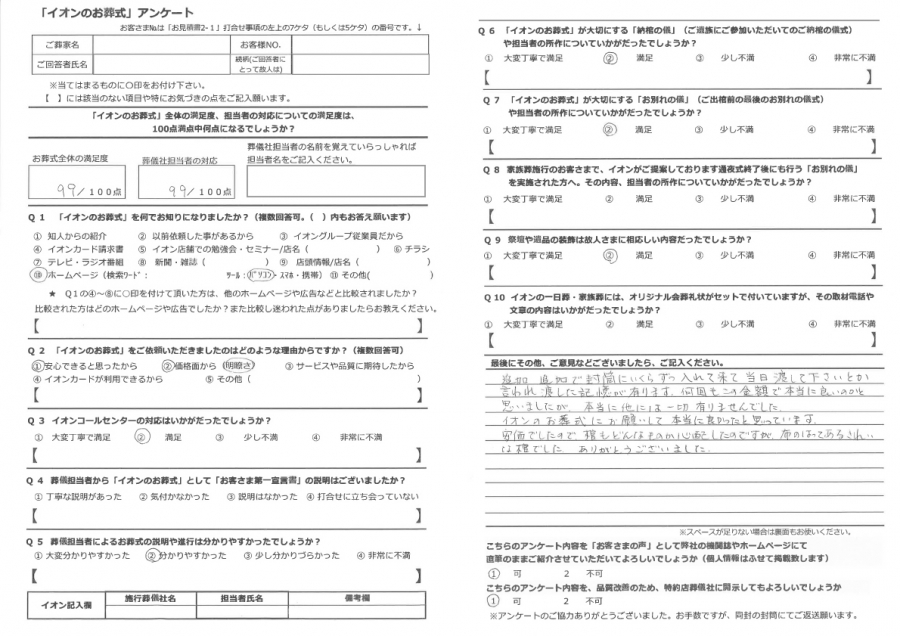 「イオンのお葬式」アンケート
お客さま№は「お見積書2-1」打合せ事項の左上の7ケタ（もしくは5ケタ）の番号です。↓
ご葬家名
お客様NO.
ご回答者氏名
続柄(ご回答者にとって故人は)
※当てはまるものに○印をお付け下さい。
【　】には該当のない項目や特にお気づきの点をご記入願います。
「イオンのお葬式」全体の満足度、担当者の対応についての満足度は、
100点満点中何点になるでしょうか？
お葬式全体の満足度
葬儀社担当者の対応
葬儀社担当者の名前を覚えていらっしゃれば
担当者名をご記入ください。
99/100点
99/100点
Q１　「イオンのお葬式」を何でお知りになりましたか？（複数回答可。（　）内もお答え願います）
① 知人からの紹介　② 以前依頼した事があるから　③ イオングループ従業員だから
④ イオンカード請求書　⑤ イオン店舗での勉強会・セミナー/店名（　）　⑥ チラシ
⑦ テレビ・ラジオ番組　⑧ 新聞・雑誌（　）　⑨ 店頭情報/店名（　）
⑩ ホームページ（検索ﾜｰﾄﾞ：　ﾂｰﾙ：パソコン・ｽﾏﾎ・携帯）⑪ その他(　)
★ Q１の④～⑥に○印を付けて頂いた方は、他のホームページや広告などと比較されましたか？
比較された方はどのホームページや広告でしたか？また比較し迷われた点がありましたらお教えください。
【　】
Q２　「イオンのお葬式」をご依頼いただきましたのはどのような理由からですか？（複数回答可）
①安心できると思ったから　②価格面から（明瞭さ）　③ サービスや品質に期待したから
④ イオンカードが利用できるから　⑤ その他（　）
【　】
Q３　イオンコールセンターの対応はいかがだったでしょうか？
① 大変丁寧で満足　② 満足　③ 少し不満　④ 非常に不満
【　】
Q４　葬儀担当者から「イオンのお葬式」として「お客さま第一宣言書」の説明はございましたか？
① 丁寧な説明があった　② 気付かなかった　③ 説明はなかった　④ 打合せに立ち会っていない
【　】
Q５　葬儀担当者によるお葬式の説明や進行は分かりやすかったでしょうか？
① 大変分かりやすかった　②分かりやすかった　③ 少し分かりづらかった　④ 非常に不満
【　】
イオン記入欄
施行葬儀社名
担当者氏名
備考欄
Q６　「イオンのお葬式」が大切にする「納棺の儀」（ご遺族にご参加いただいてのご納棺の儀式）
や担当者の所作についていかがだったでしょうか？
① 大変丁寧で満足　② 満足　③ 少し不満　④ 非常に不満
【　】
Q７　「イオンのお葬式」が大切にする「お別れの儀」（ご出棺前の最後のお別れの儀式）
や担当者の所作についていかがだったでしょうか？
① 大変丁寧で満足　② 満足　③ 少し不満　④ 非常に不満
【　】
Q８　家族葬施行のお客さまで、イオンがご提案しております通夜式終了後にも行う「お別れの儀」
を実施された方へ。その内容、担当者の所作についていかがだったでしょうか？
① 大変丁寧で満足　② 満足　③ 少し不満　④ 非常に不満
【　】
Q９　祭壇や道品の装飾は故人さまに相応しい内容だったでしょうか？
① 大変丁寧で満足　② 満足　③ 少し不満　④ 非常に不満
【　】
Q10　イオンの一日葬・家族葬には、オリジナル会葬礼状がセットで付いていますが、その取材電話や
文章の内容はいかがだったでしょうか？
① 大変丁寧で満足　② 満足　③ 少し不満　④ 非常に不満
【　】
最後にその他、ご意見などございましたら、ご記入ください。
追加で封筒にいくらずつ入れて来て当日渡して下さいとか
言われ渡した記憶が有ります。何回もこの金額で本当に良いのかと
思いましたが、本当に他には一切有りませんでした。
イオンのお葬式にお願いして本当に良かったと思っています。
安価でしたので棺もどんなものか心配したのですが、布のはってあるきれい
な棺でした。ありがとうございました。
※スペースが足りない場合は裏面もお使いください。
こちらのアンケート内容を「お客さまの声」として弊社の機関誌やホームページにて
直筆のままご紹介させていただいてよろしいでしょうか（個人情報はふせて掲載致します）
① 可　2 不可
こちらのアンケート内容を、品質改善のため、特約店葬儀社に開示してもよろしいでしょうか
① 可　2 不可
※アンケートのご協力ありがとうございました。お手数ですが、同封の封筒にてご返送願います。